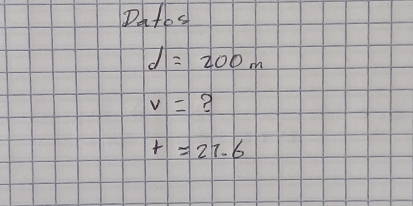 Datos
d = 200 m
v = ?
t = 27.6